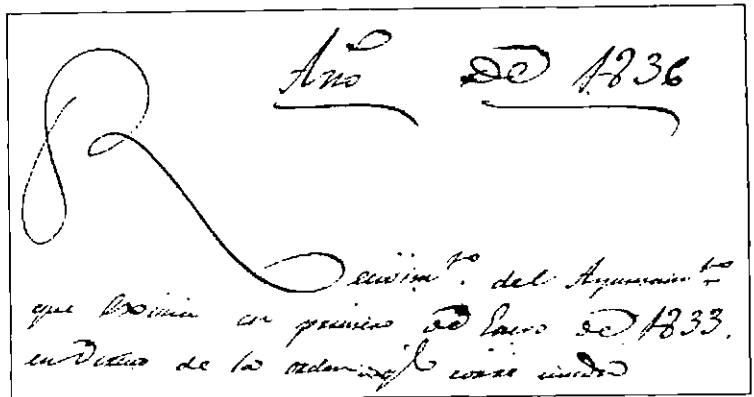 Año de 1836
Recivim.to del Ayuntam.to
que existia en primero de Enero de 1833.
en virtud de la orden q.e corre unida